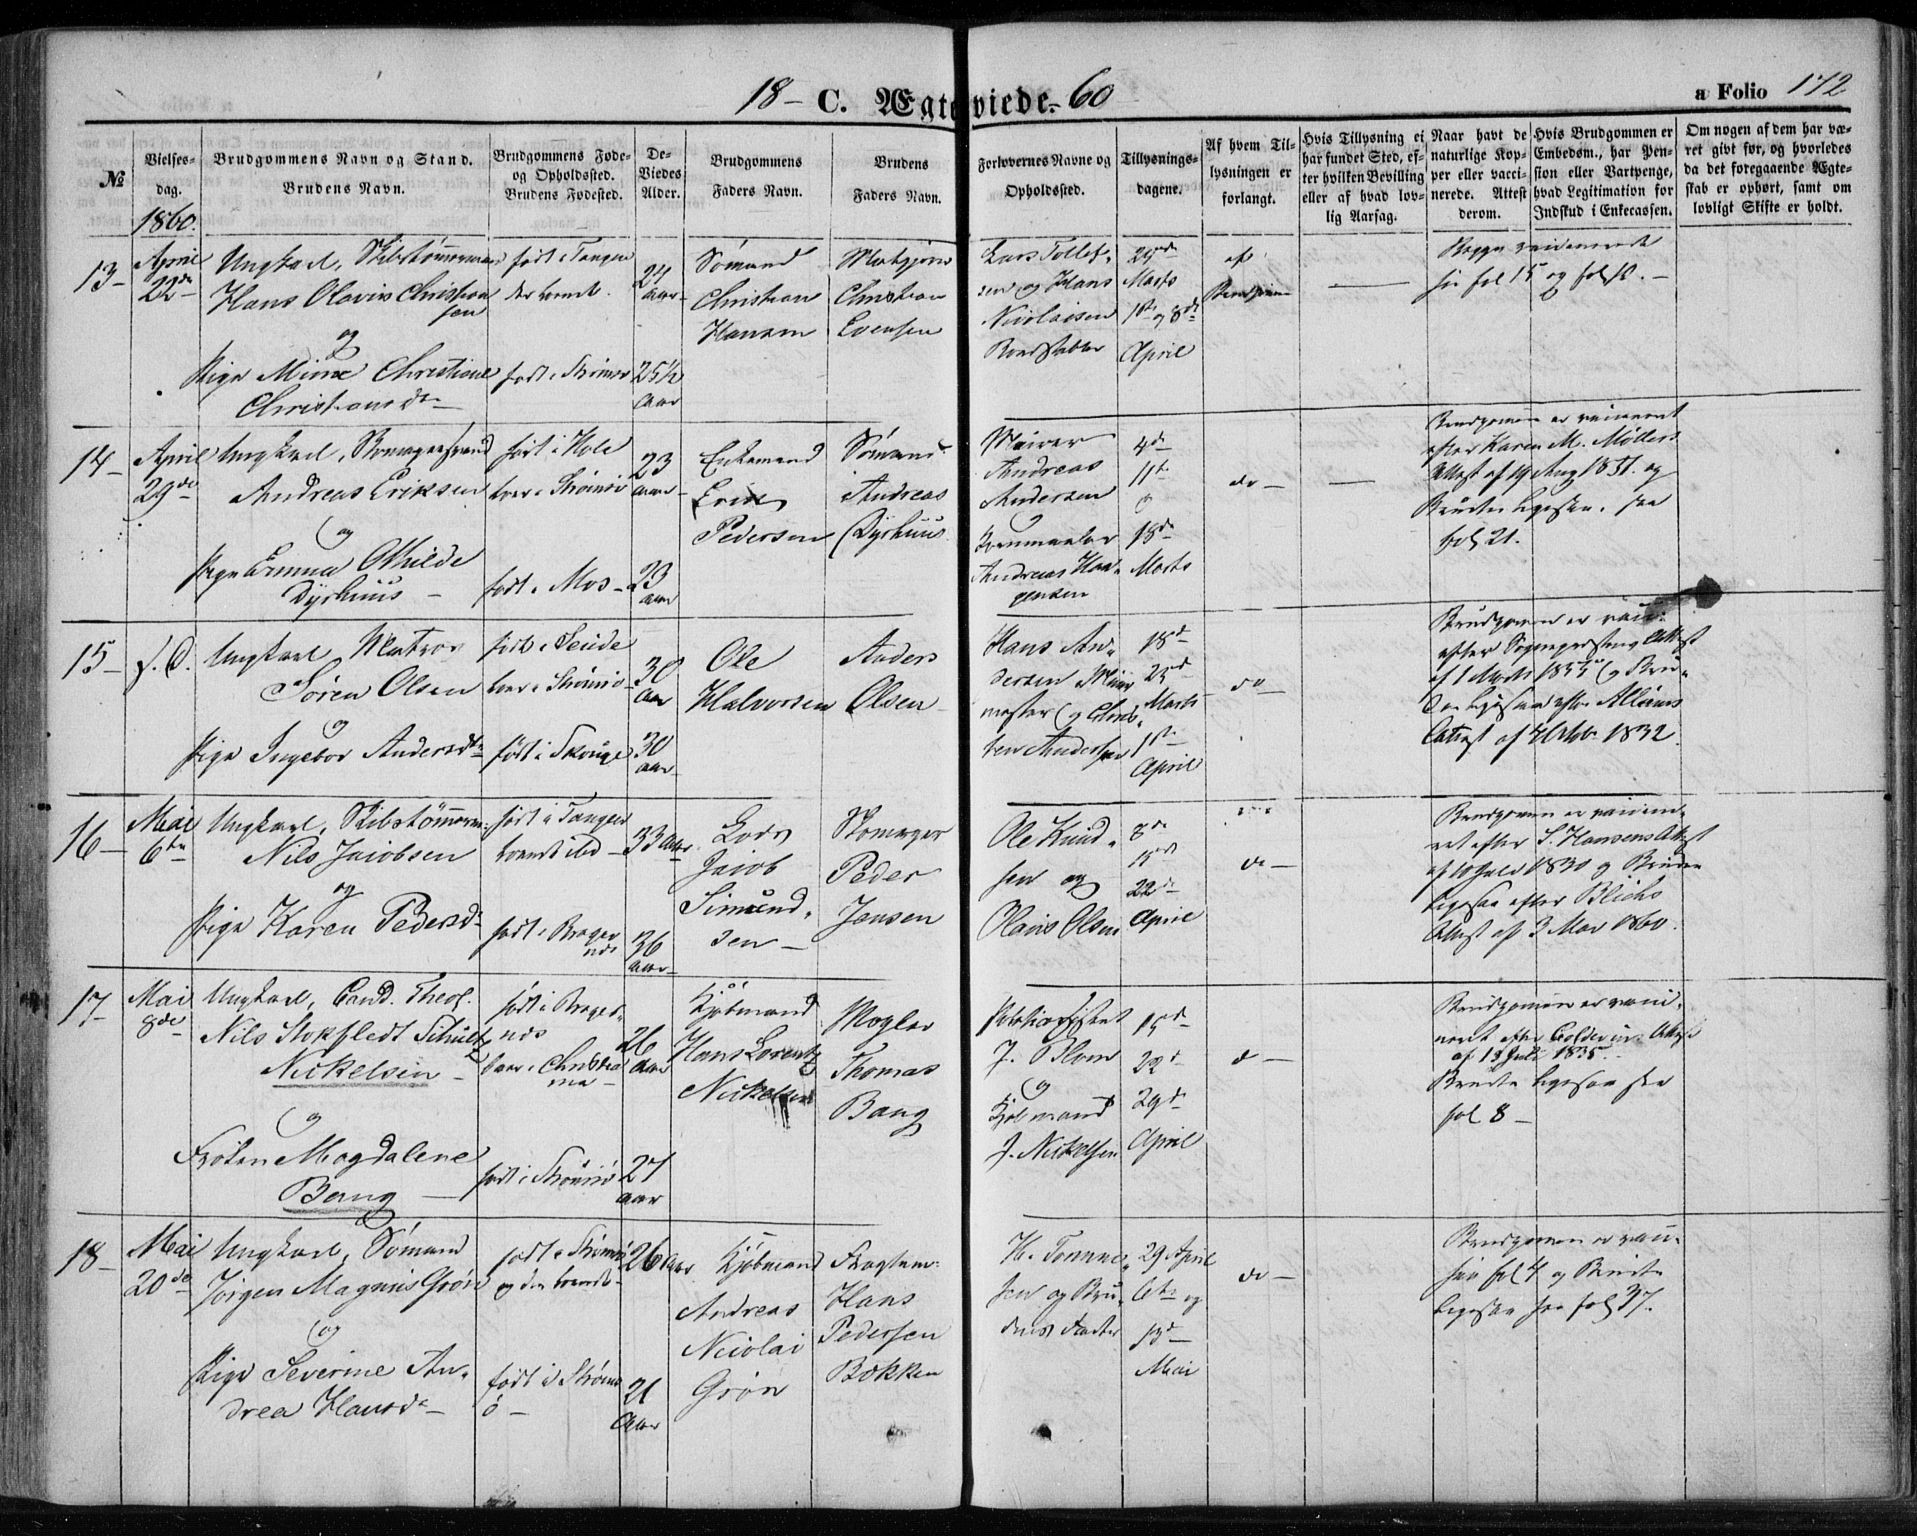 18 — C. Ægteviede. 60
a Folio 172
№
Vielses-
dag.
1860.
Brudgommens Navn og Stand.
Brudens Navn.
Brudgommens Føde-
og Opholdssted.
Brudens Fødested.
De
Viedes
Alder.
Brudgommens
Faders Navn.
Brudens
Faders Navn.
Forlovernes Navne og
Opholdssted.
Tillysnings-
dagene.
Af hvem Til-
lysningen er
forlangt.
Hvis Tillysning ei
har fundet Sted, ef-
ter hvilken Bevilling
eller af hvad lov-
lig Aarsag.
Naar havt de
naturlige Kop-
per eller vacci-
nerede. Attest
derom.
Hvis Brudgommen er
Embedsm., har Pen-
sion eller Vartpenge,
hvad Legitimation for
Indskud i Enkecassen.
Om nogen af dem har væ-
ret givt før, og hvorledes
da det foregaaende Ægte-
skab er ophørt, samt om
lovligt Skifte er holdt.
13
April
22de
Ungkarl, Skibstømmermand
Hans Olavis Christian
sen
og
Pige Mina Christiane
Christiansdtr
født i Tangen
født i Strømsø
24
Aar
25½
Aar
Sømand
Christian
Hansen
Christian
Evensen
Lars Tollef-
sen og Hans
Nicolaisen
25de
Marts
1ste og 8de
April
af
Begge vaccinerede
fol 15 og fol 10.
14
April
29de
Ungkarl, Skomagersvend
Andreas Eriksen
og
Pige Emma Othilde
Dyrhuus
født i Hole
boer i Strømsø
født i Mos
23
Aar
23
Aar
Enkemand
Erik
Pedersen
Sømand
Andreas
Dyrhuus
Murer
Andreas
Andersen
og
Andreas Haa-
gensen
4de
11te
og
18de
Marts
do
Brudgomen er vaccineret
efter Karen M. Møllers
Attest af 19 Aug 1851. og
Bruden ligesaa. see
fol 21.
15
s. D.
Ungkarl, Matros
Søren Olsen
og
Pige Ingebor Andersdtr
født i
boer i Strømsø
født i Skouge
30
Aar
30
Aar
Ole
Halvorsen
Anders
Olsen
Hans An-
dersen Murer-
mester og
Andersen
18de
25de
Marts
1ste
April
do
Brudgomen er vacci-
efter Sogneprestens Attest
og Bru-
den ligesaa efter
Attest af 1832
16
Mai
6te
Ungkarl, Skibstømmerm.
Nils Jacobsen
og
Pige Karen Pedersd.
født i Tangen
født i Brager-
næs
33 Aar
36
Aar
Lods
Jacob
Simund-
sen
Skomager
Peder
Jensen
Ole Knud-
sen og
Olavis Olsen
8de
15de
22de
April
do
Brudgomen er vaccine-
ret efter S. Hansens Attest
af 10 Juli 1830 og Bruden
ligesaa efter Blichs
Attest af 3 Mai 1860.
17
Mai
8de
Ungkarl, Cand. Theol.
Nils Stokfledt Schultz
Nickelsen
og
Frøken Magdalene
Bang
født i Brager-
næs
boer i Christia
nia
født i Strømsø
26
Aar
27
Aar
Kjøbmand
Hans Lorentz
Nickelsen
Mægler
Thomas
Bang
J. Blom
og
Kjøbmand
J. Nickelsen
15de
22de
29de
April
do
Brudgomen er vacci-
neret efter Attest
af 13 Juli 1835.
Bruden ligesaa see
fol 8
18
Mai
20de
Ungkarl, Sømand
Jørgen Magnus Grøn
og
Pige Severine An-
drea Hansd.
født i Strømsø
og der boende
født i Strøms
ø
26 Aar
21
Aar
Kjøbmand
Andreas
Nicolai
Grøn
Hans
Pedersen
Bokken
H. Tomme-
sen og Bru-
dens Fader
29 April
6te og
13de
Mai
do
Brudgomen er vacci-
see fol 4 og Bruden
ligesaa see fol 37.